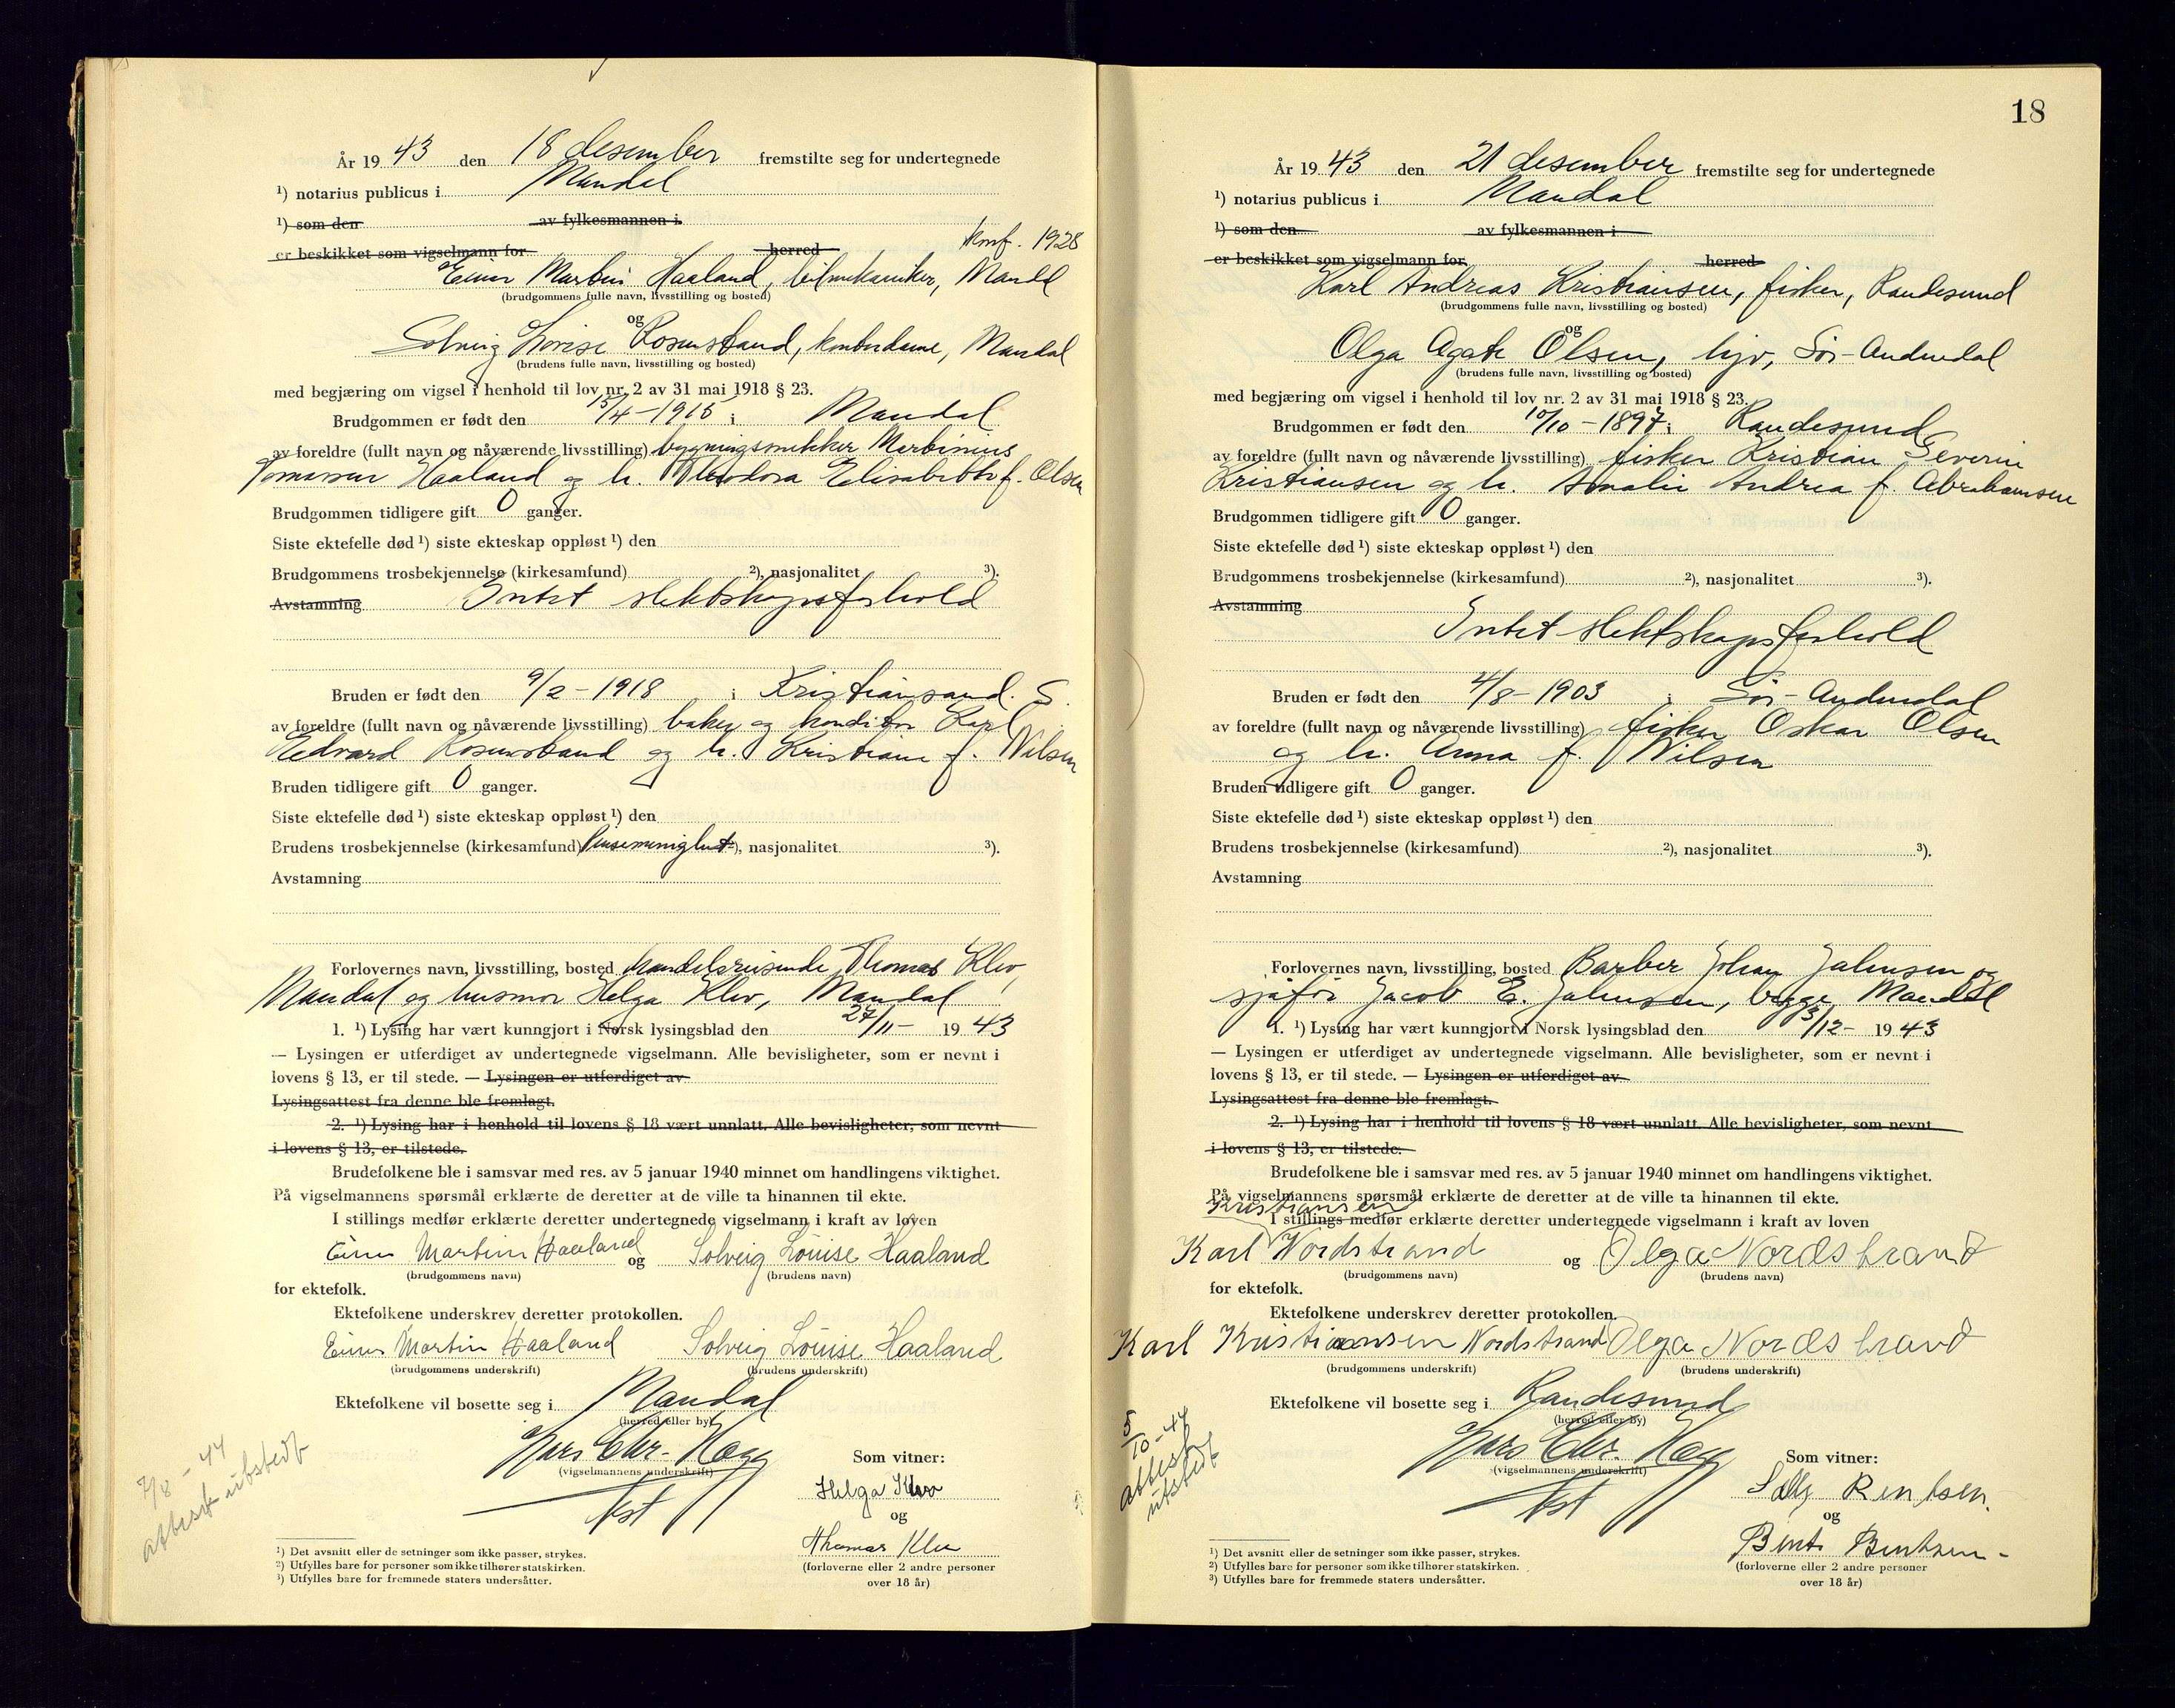 År 19 43 den 18 desember fremstilte seg for undertegnede
¹) notarius publicus i Mandal
¹) som den av fylkesmannen i
er beskikket som vigselmann for herred
konf. 1928
Einar Martin Haaland, bilmekaniker, Mandal
(brudgommens fulle navn, livsstilling og bosted)
og
Solveig Lovise Rosenstand, kontordame, Mandal
(brudens fulle navn, livsstilling og bosted)
med begjæring om vigsel i henhold til lov nr. 2 av 31 mai 1918 § 23.
Brudgommen er født den 15/4 - 1915 i Mandal
av foreldre (fullt navn og nåværende livsstilling) bygningssnekker Martinius
Haaland og h. Theodora Elisabeth f. Olsen
Brudgommen tidligere gift 0 ganger.
Siste ektefelle død ¹) siste ekteskap oppløst ¹) den
Brudgommens trosbekjennelse (kirkesamfund) ²), nasjonalitet ³).
Avstamning Intet slektskapsforhold
Bruden er født den 9/2 - 1918 i Kristiansand. S.
av foreldre (fullt navn og nåværende livsstilling) baker og konditor Karl
Edvard Rosenstand og h. Kristiane f. Nilsen
Bruden tidligere gift 0 ganger.
Siste ektefelle død ¹) siste ekteskap oppløst ¹) den
Brudens trosbekjennelse (kirkesamfund) Pinsemenighet ²), nasjonalitet ³).
Avstamning
Forlovernes navn, livsstilling, bosted handelsreisende Thomas Klev,
Mandal og husmor Helga Klev, Mandal
1. ¹) Lysing har vært kunngjort i Norsk lysingsblad den 27/11 - 19 43
— Lysingen er utferdiget av undertegnede vigselmann. Alle bevisligheter, som er nevnt i
lovens § 13, er til stede. — Lysingen er utferdiget av
Lysingsattest fra denne ble fremlagt.
2. ¹) Lysing har i henhold til lovens § 18 vært unnlatt. Alle bevisligheter, som nevnt
i lovens § 13, er tilstede.
Brudefolkene ble i samsvar med res. av 5 januar 1940 minnet om handlingens viktighet.
På vigselmannens spørsmål erklærte de deretter at de ville ta hinannen til ekte.
I stillings medfør erklærte deretter undertegnede vigselmann i kraft av loven
Einar Martin Haaland og Solveig Louise Haaland
(brudgommens navn) (brudens navn)
for ektefolk.
Ektefolkene underskrev deretter protokollen.
Einar Martin Haaland Solveig Louise Haaland
(brudgommens underskrift) (brudens underskrift)
Ektefolkene vil bosette seg i Mandal
(herred eller by)
Hars Chr. Hagg
(vigselmannens underskrift)
kst
Som vitner:
Helga Klev
og
Thomas Klev
(forloverne eller 2 andre personer
over 18 år)
7/8 - 44
attest utstedt
¹) Det avsnitt eller de setninger som ikke passer, strykes.
²) Utfylles bare for personer som ikke tilhører statskirken.
³) Utfylles bare for fremmede staters undersåtter.
18
År 19 43 den 21 desember fremstilte seg for undertegnede
¹) notarius publicus i Mandal
¹) som den av fylkesmannen i
er beskikket som vigselmann for herred
Karl Andreas Kristiansen, fisker, Randesund
(brudgommens fulle navn, livsstilling og bosted)
og
Olga Agate Olsen, hjv, Sør-Audnedal
(brudens fulle navn, livsstilling og bosted)
med begjæring om vigsel i henhold til lov nr. 2 av 31 mai 1918 § 23.
Brudgommen er født den 10/10 - 1897 i Randesund
av foreldre (fullt navn og nåværende livsstilling) fisker Kristian Severin
Kristiansen og h. Amalie Andrea f. Abrahamsen
Brudgommen tidligere gift 0 ganger.
Siste ektefelle død ¹) siste ekteskap oppløst ¹) den
Brudgommens trosbekjennelse (kirkesamfund) ²), nasjonalitet ³).
Avstamning
Intet slektskapsforhold
Bruden er født den 4/8 - 1903 i Sør-Audnedal
av foreldre (fullt navn og nåværende livsstilling) fisker Oskar Olsen
og h. Anna f. Nilsen
Bruden tidligere gift 0 ganger.
Siste ektefelle død ¹) siste ekteskap oppløst ¹) den
Brudens trosbekjennelse (kirkesamfund) ²), nasjonalitet ³).
Avstamning
Forlovernes navn, livsstilling, bosted Barber Johan Jahnsen og
sjåfør Jacob E. Jahnsen, begge Mandal
1. ¹) Lysing har vært kunngjort i Norsk lysingsblad den 3/12 - 19 43
— Lysingen er utferdiget av undertegnede vigselmann. Alle bevisligheter, som er nevnt i
lovens § 13, er til stede. — Lysingen er utferdiget av
Lysingsattest fra denne ble fremlagt.
2. ¹) Lysing har i henhold til lovens § 18 vært unnlatt. Alle bevisligheter, som nevnt
i lovens § 13, er tilstede.
Brudefolkene ble i samsvar med res. av 5 januar 1940 minnet om handlingens viktighet.
På vigselmannens spørsmål erklærte de deretter at de ville ta hinannen til ekte.
Kristiansen
I stillings medfør erklærte deretter undertegnede vigselmann i kraft av loven
Karl Nordstrand og Olga Nordstrand
(brudgommens navn) (brudens navn)
for ektefolk.
Ektefolkene underskrev deretter protokollen.
Karl Kristiansen Nordstrand Olga Nordstrand
(brudgommens underskrift) (brudens underskrift)
Ektefolkene vil bosette seg i Randesund
(herred eller by)
Hars Chr. Hagg
(vigselmannens underskrift)
kst
Som vitner:
Sally Bentsen
og
Bent Bentsen
(forloverne eller 2 andre personer
over 18 år)
5/10 - 44
attest
utstedt
¹) Det avsnitt eller de setninger som ikke passer, strykes.
²) Utfylles bare for personer som ikke tilhører statskirken.
³) Utfylles bare for fremmede staters undersåtter.